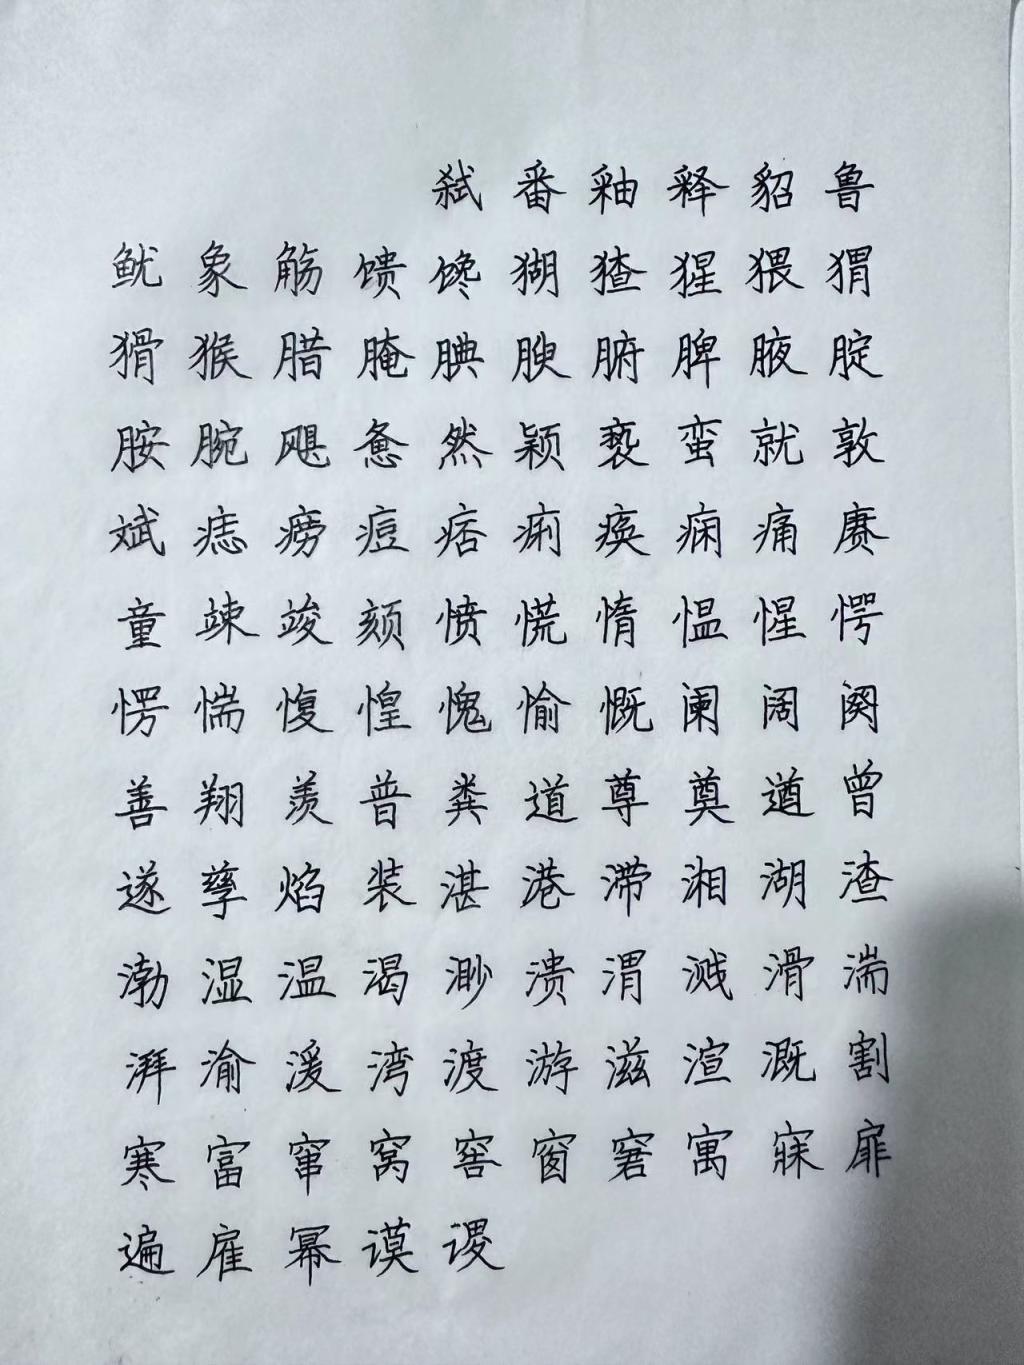 弑番釉释貂鲁
鱿象觞馈馋猢猹猩猥猬
猾猴腊腌腆腴腑脾腋腚
胺腕飓惫然颖亵蛮就敦
斌痣痨痘痞痢痪痫痛赓
童竦竣颏愤慌惰愠惺愕
愣惴愎惶愧愉慨阑阔阕
善翔羡普粪道尊奠遒曾
遂孳焰装湛港滞湘湖渣
渤湿温渴渺溃渭溅滑湍
湃渝湲湾渡游滋渲溉割
寒富窜窝窖窗窘寓寐扉
遍雇幂谟谡